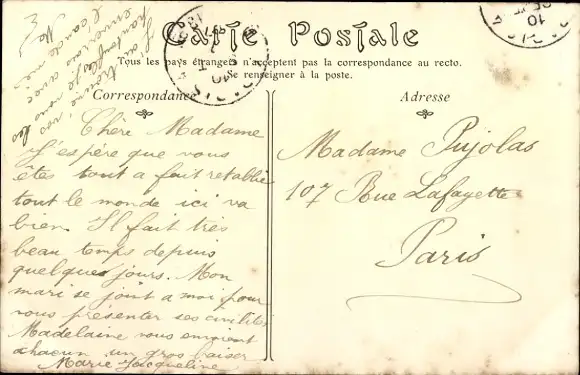 Carte Postale
Tous les pays étrangers n'acceptent pas la correspondance au recto.
Se renseigner à la poste.
Correspondance
Adresse
Chère Madame
J'espère que vous
êtes tout a fait retablie
tout le monde ici va
bien. Il fait très
beau temps depuis
quelques jours. Mon
mari se joint a moi pour
vous présenter ses civilités
Madelaine vous envoient
chacun un gros baiser
Marie Jacqueline
Madame Pujolas
107 Rue Lafayette
Paris
trouvé vos
pantoufles je vous les
enverrais avec